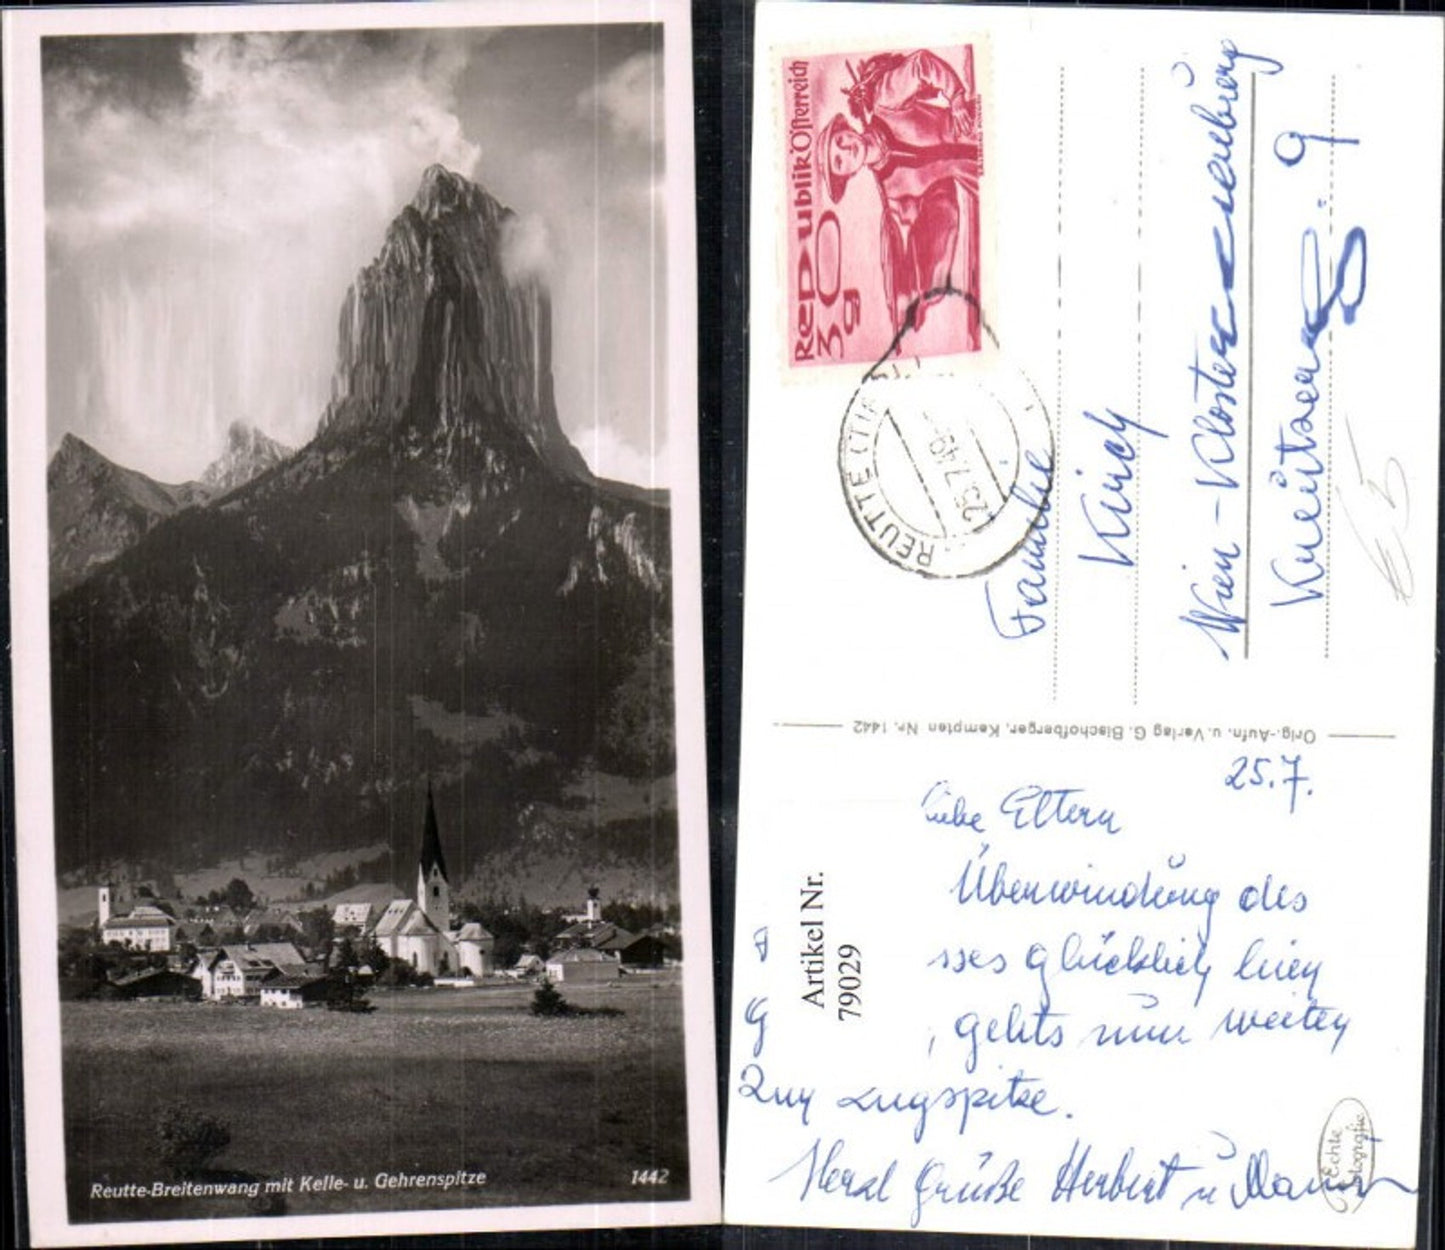 Reutte-Breitenwang mit Kelle- u. Gehrenspitze 1442
Republik Österreich
30 g
REUTTE (TIROL)
25.7.49
Familie
Wien - Klosterneuburg
9
Orig.-Aufn. u. Verlag G. Bischofberger, Kempten Nr. 1442
25.7.
Liebe Eltern
Überwindung des
sses glücklich
, gehts nun weiter
zur Zugspitze.
Herzl Grüße Herbert u
Artikel Nr.
79029
Echte
Fotografie